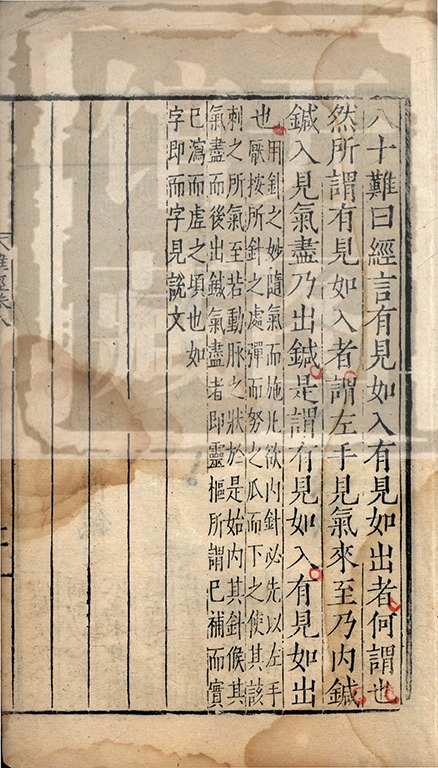 八十難曰經言有見如入有見如出者何謂也
然所謂有見如入者謂左手見氣來至乃內鍼
鍼入見氣盡乃出鍼是謂有見如入有見如出
也用針之妙隨氣而施此欲內針必先以左手
厭按所針之處彈而努之瓜而下之使其該
刺之所氣至若動脉之狀於是始內其針候其
氣盡而後出鍼氣盡者即靈樞所謂已補而實
已瀉而虛之頃也如
字即而字見說文